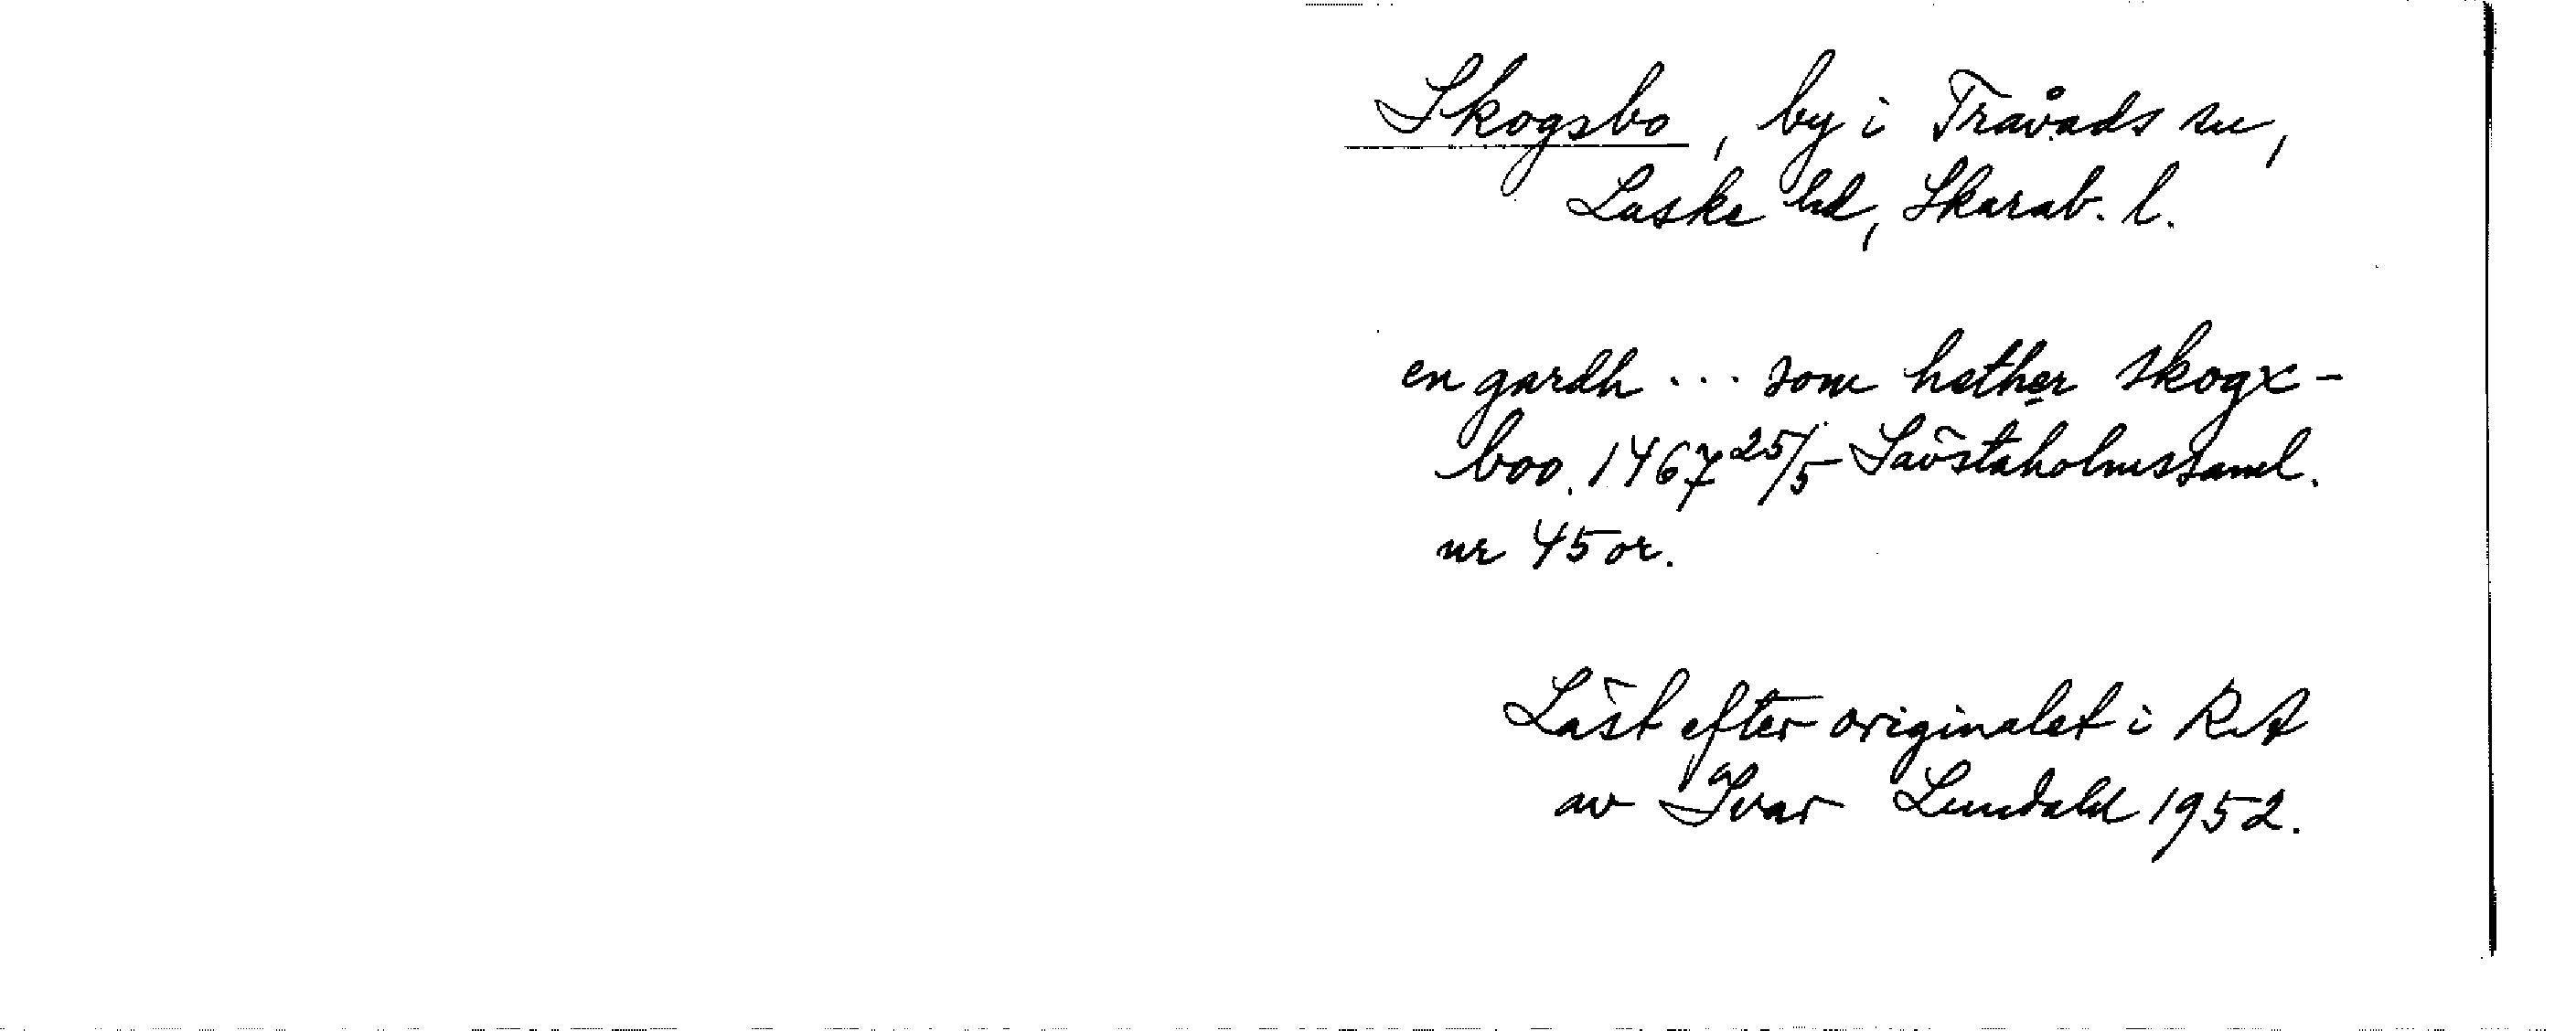 Skogsbo, by i Tråvads sn,
Laske hd, Skarab. l.
en gardh ... som hether skogx-
boo. 1467 25/5 Sävstaholmssaml.
nr 45 or.
Läst efter originalet i RA
av Ivar Lundahl 1952.